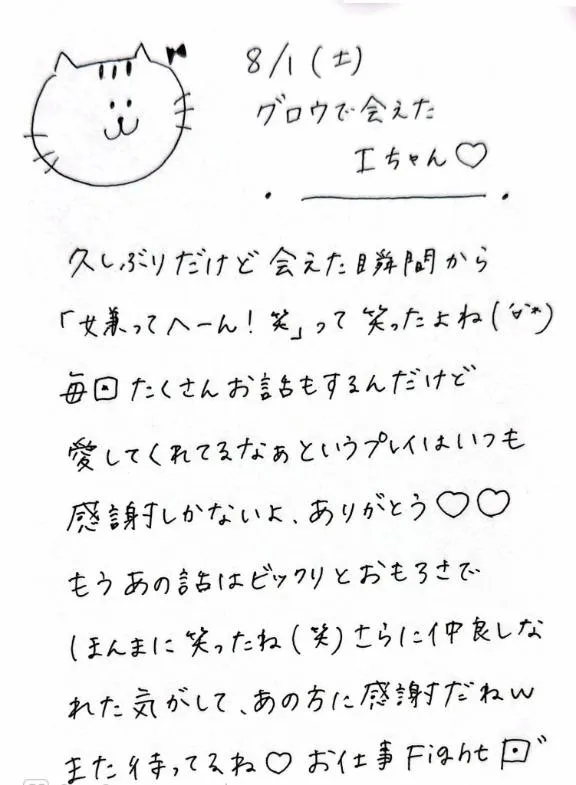 8/1(土)
グロウで会えた
Iちゃん♡
久しぶりだけど会えた瞬間から
「嫌ってへーん!笑」って笑ったよね(
毎回たくさんお話もするんだけど
愛してくれてるなぁというプレイはいつも
感謝しかないよ、ありがとう♡♡
もうあの話はビックリとおもろさで
ほんまに笑ったね(笑)さらに仲良しな
れた気がして、あの方に感謝だねw
また待ってるね♡お仕事Fight